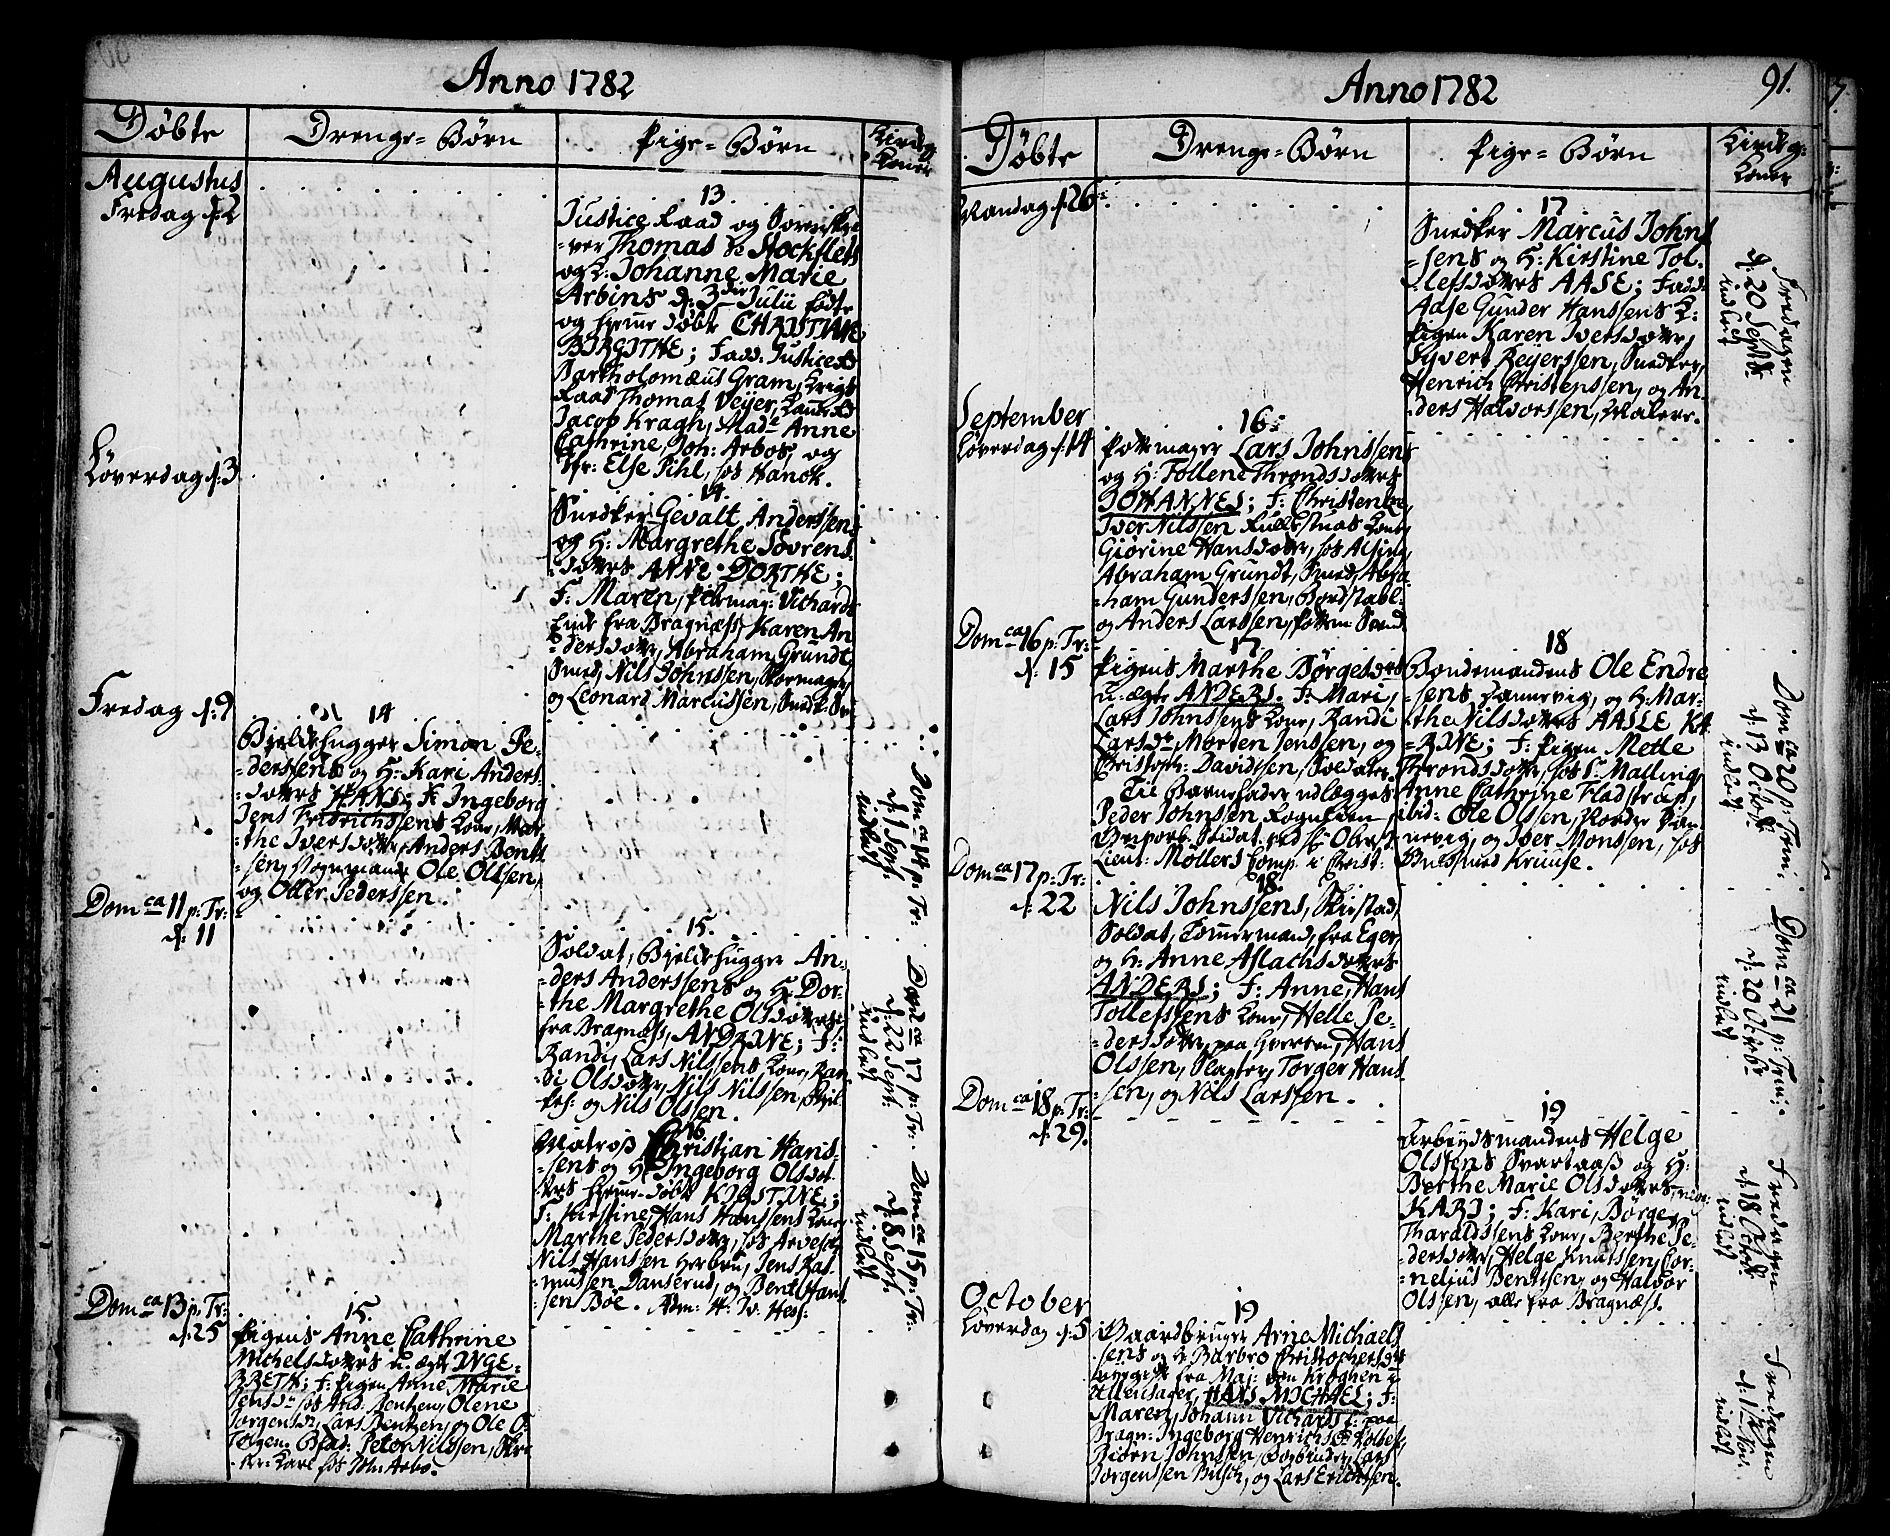 Anno 1782
Døbte
Drenge-Børn
Pige-Børn
Kirckg:
Koner
Augustus
Fredag d: 2
13.
Justice Raad og Sorenskri-
-ver Thomas de Stockfleth
og H: Johanne Marie
Arbins d: 3die Julii fødte
og hjemme døbte CHRISTIANE
BIRGITHE; Fadd: Justice Rd
Bartholomæus Gram, Krigs
Raad Thomas Veÿer,
Jacob Kragh, Made Anne
Cathrine Joh: Arbos, og
Jfr: Else Pihl, hos Hanck.
Løverdag d: 3
14.
Snedker Gevalt Anderssens
og H: Margrethe Sørens-
datters ANNE DORTHE;
F: Maren, Vichards
fra Bragnæss, Karen An-
dersdatter, Abraham Grundt
Smed, Nils Johnssen,
og Leonard Marcussen, Snedk: Sv:
Fredag d: 9
14
Bjelkehugger Simon Pe-
-derssens og H: Kari Anders-
-datters HANS; F: Ingeborg
Jens Fridrichssens Kone, Mar-
the Iversdatter, Anders Bentz
-sen, Vognmand, Ole Olssen,
og Oller Pederssen.
Dom ca 14 p: Tr:
d: 1 Sept:
indledt
Dom ca 11 p: Tr:
d: 11
15.
Soldat, Bjelkehugger An-
-ders Anderssens og H: Dor-
-the Margrethe Olsdatters
fra Bragnæss, ANDRINE; F:
Randi, Lars Nilssens Kone, Ran-
di Olsdatter, Nils Nilssen,
og Nils Olssen.
Dom ca 17 p: Tr:
d: 22 Sept:
indledt
16
Matros Christian Hans-
-sens og H: Ingeborg Olsdat-
ters hjemme-døbt KIRSTINE;
F: Kirstine, Hans Hanssens Kone,
Marthe Pedersdatter, hos Arveschou
Nils Hanssen Herbru, Jens Ras-
mussen Danserud, og Bent Hans-
-sen Bøe.
Dom ca 15 p: Tr:
d: 8 Sept:
indledt
Dom ca 13 p: Tr:
d: 25
15.
Pigens Anne Cathrine
Michelsdatters u. ægte INGE-
BRETH; F: Pigen Anne Marie
Jensdr hos And. Bentzen, Olene
Jørgensdr, Lars Bentzen, og Ole
Jørgen. Bfad: Peter Nilssen,
Karl hos Joh: Arbo.
Anno 1782
91.
Døbte
Drenge-Børn
Pige-Børn
Kirckg:
Koner
Mandag d: 26
17
Snedker Marcus Johns
-sens og H: Kirstine Tol-
-lefsdatters AASE; Fadd:
Aase Gunder Hanssens K:
Pigen Karen Iversdatter,
Syvert Reyerssen, Snedker,
Henrich Christenssen, og An-
-ders Haldorssen, Malere.
Fredagen
d: 20 Septb:
indledt
September
Løverdag d: 14
16
Pottemager Lars Johnssens
og H: Tollene Throndsdatters
JOHANNES; F: Christense,
Iver Nilssen Kullestuas Kone,
Giørine Hansdatter, hos Alsing,
Abraham Grundt, Smed, Abra-
-ham Gunderssen, Bordstabl:
og Anders Larssen, Pottem: Svend
Dom ca 16 p: Tr:
d: 15
17
Pigens Marthe Børgesdatters
u: ægte ANDERS. F: Mari,
Lars Johnssens Kone, Randi
Larsdr, Morten Jenssen, og
Christoph: Davidssen, Soldater.
Til Barnefader udlægges
Peder Johnssen Rognlien,
Soldat ved Hr Obrist
Lieut: Møllers Comp: i Christ:
18
Bondemandens Ole Endre-
-sens Dannevig, og H: Mar-
the Nilsdatters AASLE KA-
-RINE; F: Pigen Mette
Throndsdatter, hos S: Malling,
Anne Cathrine Fladstrup,
ibid: Ole Olssen,
-nevig, og Iver Monssen, hos
Bundsmed Kruuse.
Dom ca 20 p: Trin:
d: 13 Octobr:
indledt
Dom ca 17 p: Tr:
d: 22
18.
Nils Johnssens, Skirstad,
Soldat, Tømmermand, fra Eger,
og H: Anne Aslachsdatters
ANDERS; F: Anne, Hans
Tollefssens Kone, Helle Pe-
-dersdatter, paa Hverven, Hans
Olssen, Slagter, Torger Hans-
-sen, og Nils Larssen.
Dom ca 21 p: Trin:
d: 20 Octobr
indledt
Dom ca 18 p: Tr:
d: 29.
19
Arbeydsmandens Helge
Olssens Svartaass og H:
Berthe Marie Olsdatters,
KARI; F: Kari, Børge
Tharaldssens Kone, Berthe Pe-
dersdatter, Helge Knutssen, Cor-
-nelius Bentssen, og Halvor
Olssen, alle fra Bragnæss.
Fredagen
d: 18 Octobr:
indledt
October
Løverdag d: 5
19
Gaardbruger Arne Michaels
-sens og H: Barbro Christophersdr
fra Maj: von Kroghen i
Ullensager, HANS MICHAEL; F:
Maren, Johann Vichards K: paa
Bragn: Ingeborg Henrichsdr
Biørn Johnssen, Bogbinder, Lars
Jørgenssen Busch, og Lars Erichssen.
Fredagen
d: 1 Nov:
indledt